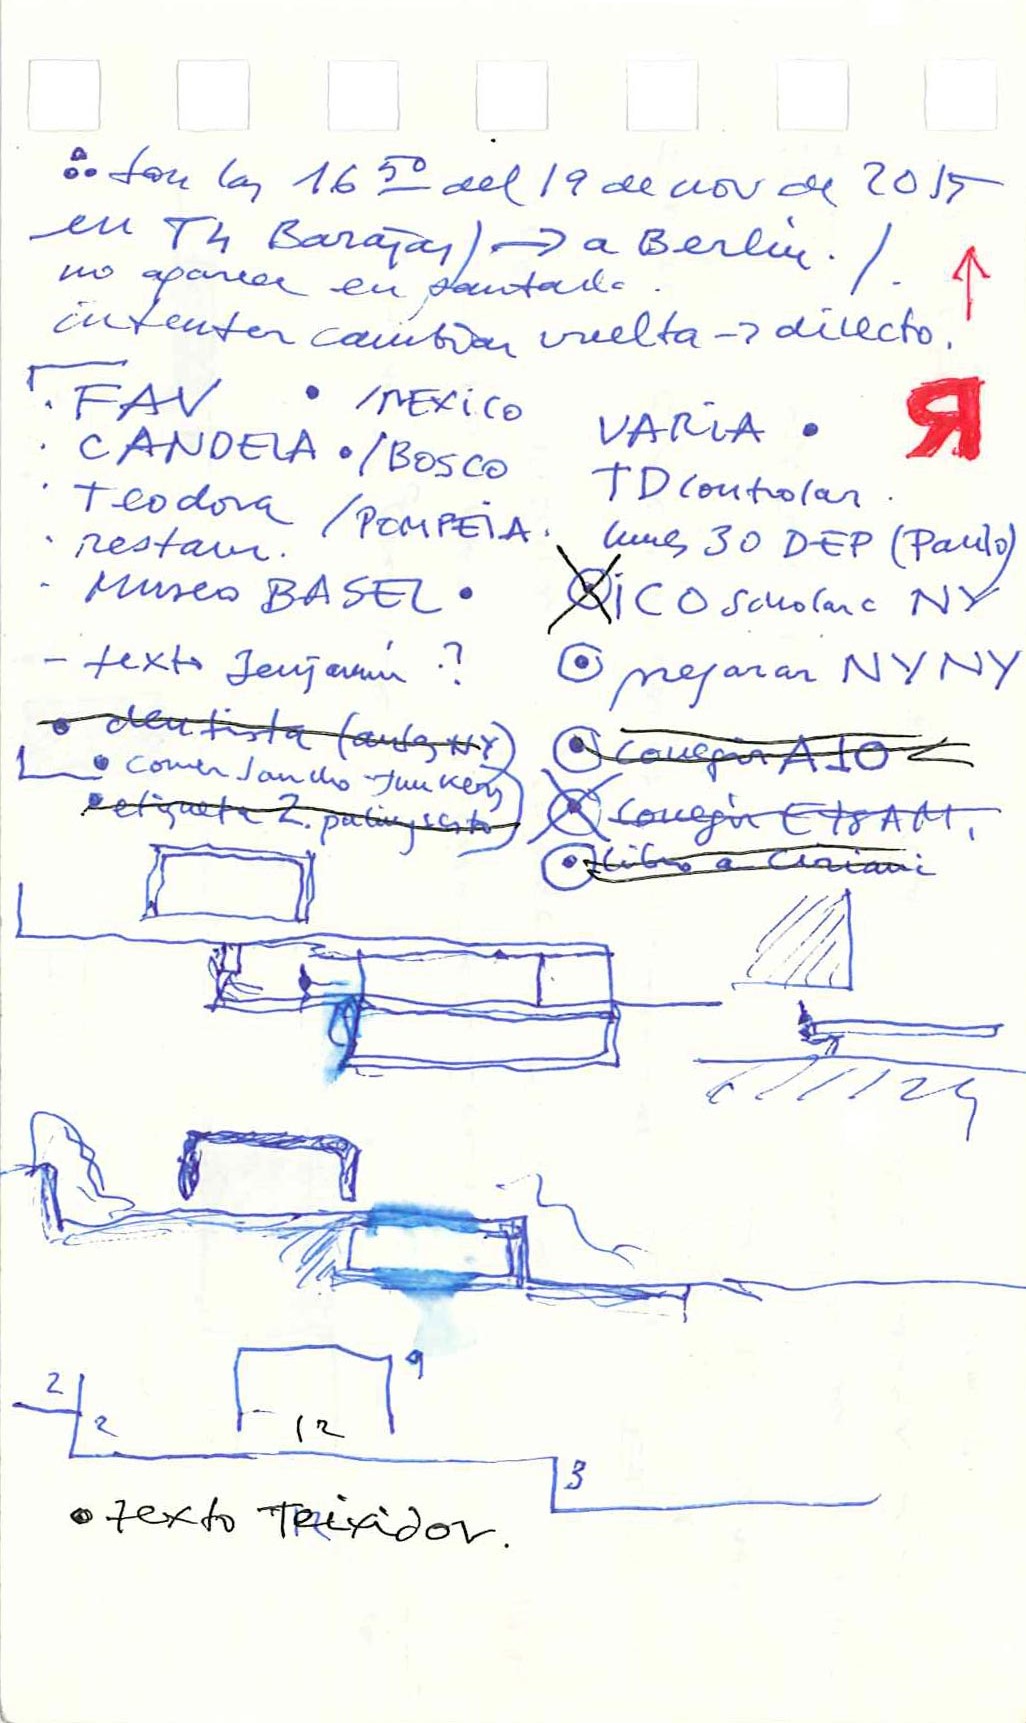 Son las 16 50 del 19 de nov de 2015
en T4 Barajas) → a Berlín. /.
no aparece en pantalla.
intentar cambiar vuelta → directo.
Я
· FAV • /MEXICO
· CANDELA • /BOSCO
· Teodora /POMPEIA.
· restaur.
- Museo BASEL •
- texto Benjamín ?
• dentista (antes NY)
• comer Sancho Junkers
• etiqueta Z. palimpsesto
VARIA •
TD controlar.
lunes 30 DEP (Paulo)
ICO scholar NY
preparar NY NY
corregir A10
corregir ETSAM.
libro a Ciriani
2
2
9
12
3
• texto Teixidor.